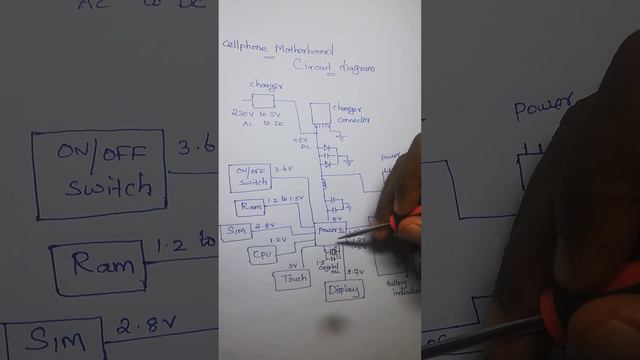 Cellphone Motherboard
Circuit diagram
charger
230V to 5V
AC to DC
charger
connector
+5V
DC
ON/OFF
Switch
3.6V
Ram
1.2 to 1.5V
5V
Sim
2.8V
Power IC
Cpu
1.2V
1.8V
3V
Touch
crystal
3.7V
Display
Battery
indicator
AC to DC
ON/OFF
Switch
3.6
Ram
1.2 to
SIM
2.8V
Power